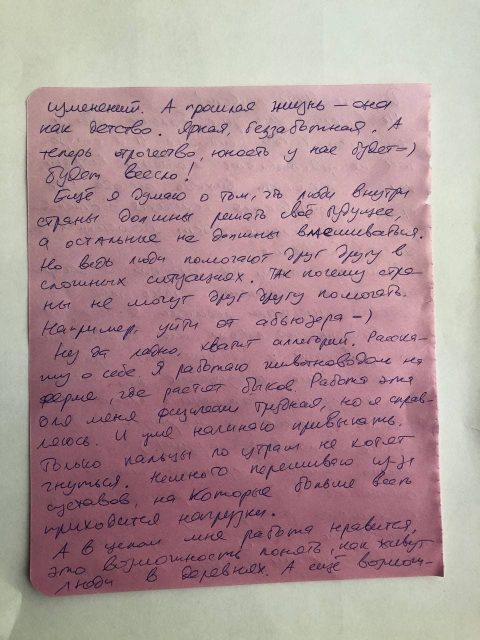 изменений. А прошлая жизнь – она
как детство. Яркая, беззаботная. А
теперь отрочество, юность у нас будет =)
будет весело!
Ещё я думаю о том, что люди внутри
страны должны решать своё будущее,
а остальные не должны вмешиваться.
Но ведь люди помогают друг другу в
сложных ситуациях. Так почему стра-
ны не могут друг другу помогать.
Например, уйти от абьюзера =)
Ну да ладно, хватит аллегорий. Расска-
жу о себе. Я работаю животноводом на
ферме, где растят быков. Работа эта
для меня физически трудная, но я справ-
ляюсь. И уже начинаю привыкать.
Только пальцы по утрам не хотят
гнуться. Немного переживаю из-за
суставов, на которые больше всего
приходится нагрузки.
А в целом мне работа нравится,
это возможность понять, как живут
люди в деревнях. А ещё возмож-